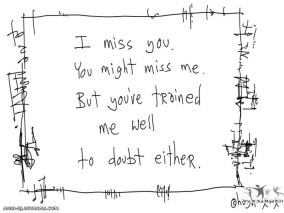 I miss you.
You might miss me.
But you've trained
me well
to doubt either.